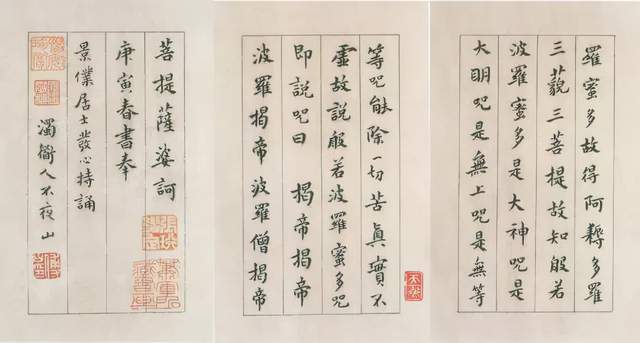 羅蜜多故得阿耨多羅
三藐三菩提故知般若
波羅蜜多是大神咒是
大明咒是無上咒是無等
等咒能除一切苦眞實不
虛故說般若波羅蜜多咒
即說咒曰 揭帝揭帝
波羅揭帝 波羅僧揭帝
菩提薩婆訶
庚寅春書奉
景僕居士發心持誦
濁人不夜山